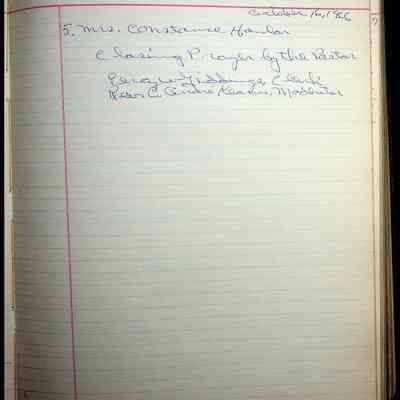 October 16, 1966
5. Mrs. Constance
Closing Prayer by the Pastor
Leroy Giddings, Clerk
Rev. C. Andre Kearns, Moderator